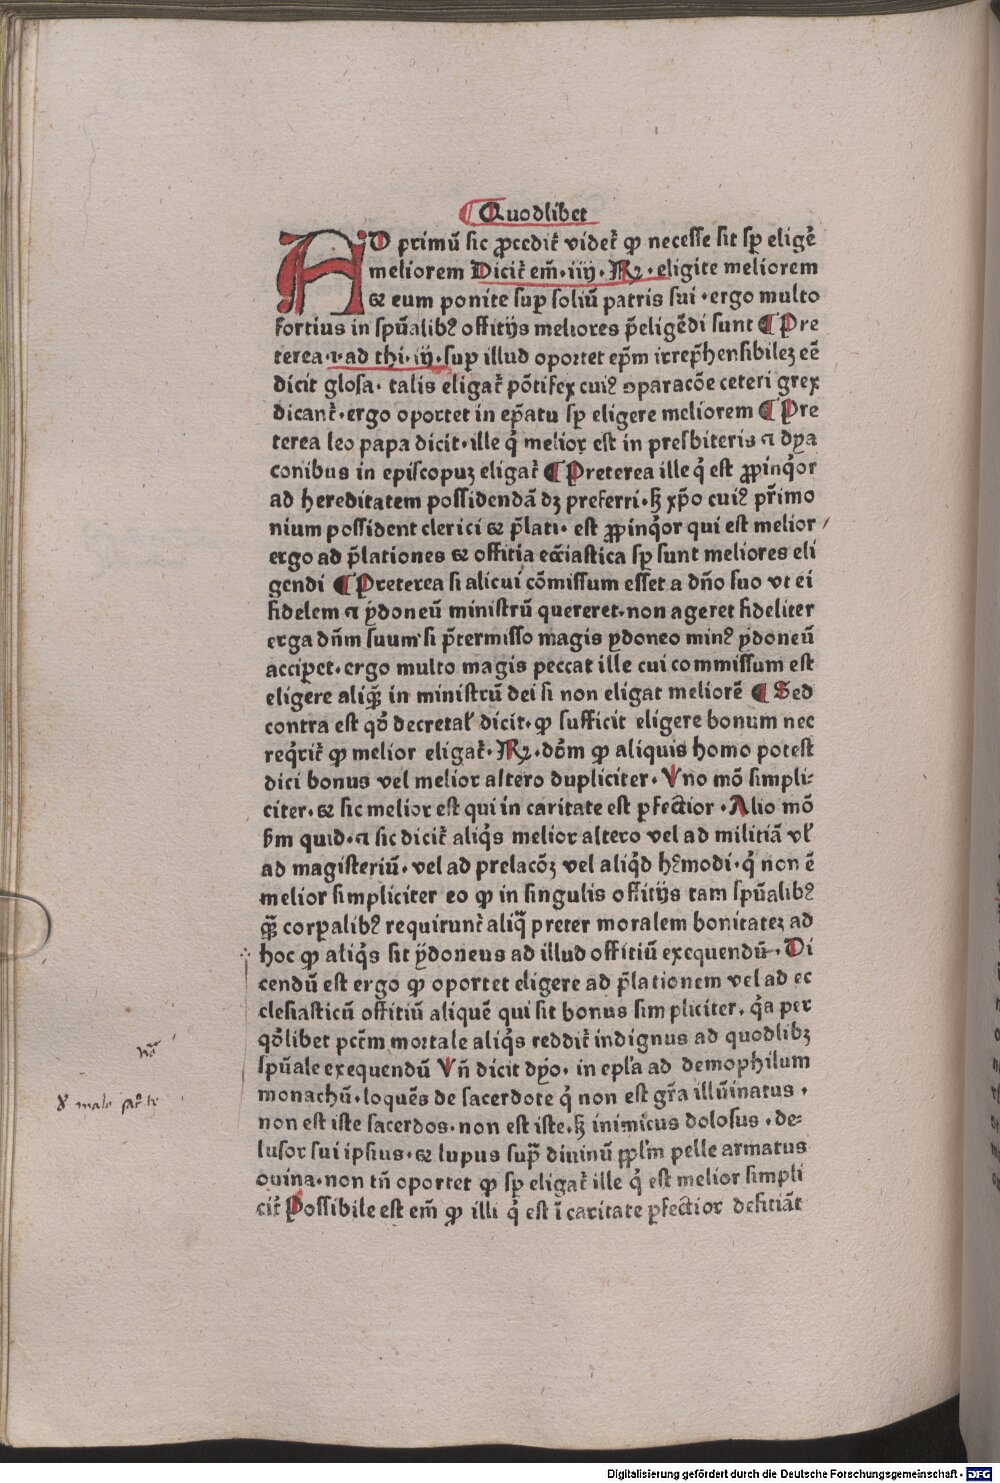 ¶ Quodlibet
AD primū sic ꝓcedit᷑ videt᷑ ꝙ necesse sit sꝑ eligē
meliorem Dicit᷑ em̄ · iiij · Rꝝ · eligite meliorem
⁊ eum ponite suꝑ soliū patris sui · ergo multo
fortius in spūalibꝰ offitijs meliores p̄eligēdi sunt ¶ Pre
terea · i · ad thi · iij · suꝑ illud oportet ep̄m irrep̄hensibileꝫ eē
dicit glosa · talis eligat᷑ pōtifex cuiꝰ ꝯparacōe ceteri grex
dicant᷑ · ergo oportet in ep̄atu sꝑ eligere meliorem ¶ Pre
terea leo papa dicit · ille q̇ melior est in presbiteris ⁊ dya
conibus in episcopuꝫ eligat᷑ ¶ Preterea ille q̇ est ꝓpinq̇or
ad hereditatem possidendā dꝫ preferri · sꝫ xp̄o cuiꝰ pr̄imo
nium possident clerici ⁊ p̄lati · est ꝓpinq̇or qui est melior /
ergo ad p̄lationes ⁊ offitia ecc̄iastica sꝑ sunt meliores eli
gendi ¶ Preterea si alicui cōmissum esset a dn̄o suo vt ei
fidelem ⁊ ydoneū ministrū quereret · non ageret fideliter
erga dn̄m suum si p̄termisso magis ydoneo minꝰ ydoneū
accipet · ergo multo magis peccat ille cui commissum est
eligere aliq̄ꝫ in ministrū dei si non eligat meliorē ¶ Sed
contra est qd̄ decretal̕ dicit · ꝙ sufficit eligere bonum nec
req̇rit᷑ ꝙ melior eligat᷑ · Rꝝ · dōm ꝙ aliquis homo potest
dici bonus vel melior altero dupliciter · Vno mō simpli⸗
citer · ⁊ sic melior est qui in caritate est ꝑfectior · Alio mō
ẜm quid · ⁊ sic dicit᷑ aliq̇s melior altero vel ad militiā vl̕
ad magisteriū · vel ad prelacōꝫ vel aliq̇d hꝰmodi · q̇ non ē
melior simpliciter eo ꝙ in singulis offitijs tam spūalibꝰ
q̄ꝫ corꝑalibꝰ requirunt᷑ aliq̄ preter moralem bonitateꝫ ad
hoc ꝙ aliq̇s sit ydoneus ad illud offitiū exequendū · Di
cendū est ergo ꝙ oportet eligere ad p̄lationem vel ad ec
clesiasticū offitiū aliquē qui sit bonus simpliciter, q̇a per
qd̄libet pctm̄ mortale aliq̇s reddit᷑ indignus ad quodlibꝫ
spūale exequendū Vn̄ dicit dyo · in epl̕a ad demophilum
monachū · loquēs de sacerdote q̇ non est gr̄a illūinatus ·
non est iste sacerdos · non est iste · sꝫ inimicus dolosus · de⸗
lusor sui ipsius · ⁊ lupus supr̄ diuinū ppl̕m pelle armatus
ouina · non tn̄ oportet ꝙ sꝑ eligat᷑ ille q̇ est melior simpli
cit᷑ Possibile est em̄ ꝙ illi q̇ est ī caritate ꝑfectior defitiāt
Digitalisierung gefördert durch die Deutsche Forschungsgemeinschaft - DFG